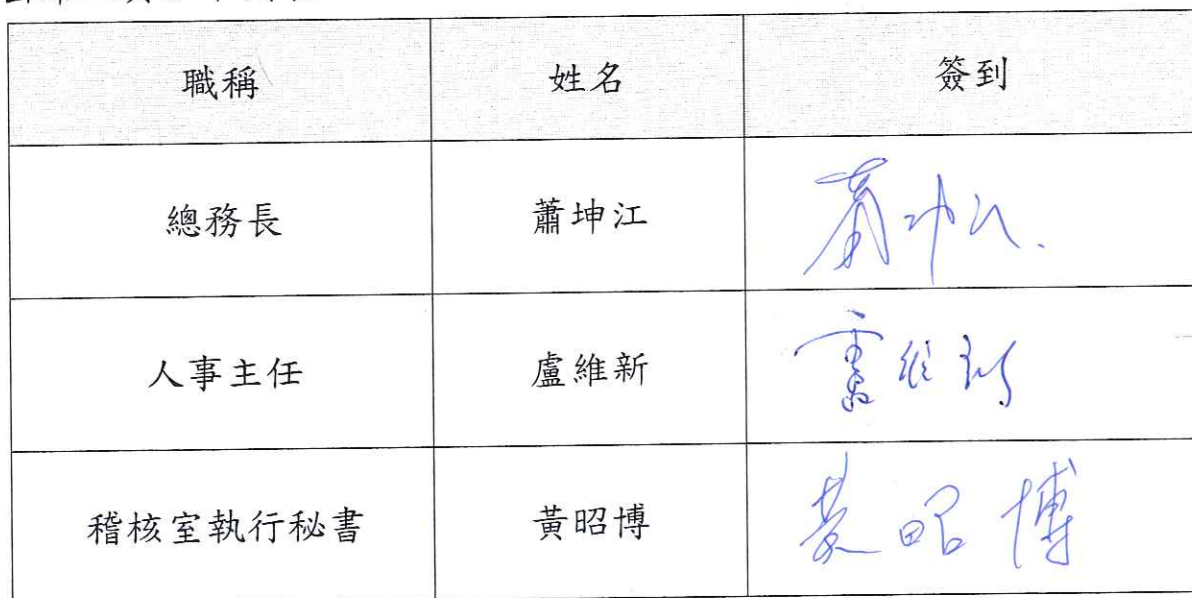 職稱 姓名 簽到
總務長 蕭坤江 蕭坤江
人事主任 盧維新 盧維新
稽核室執行秘書 黃昭博 黃昭博